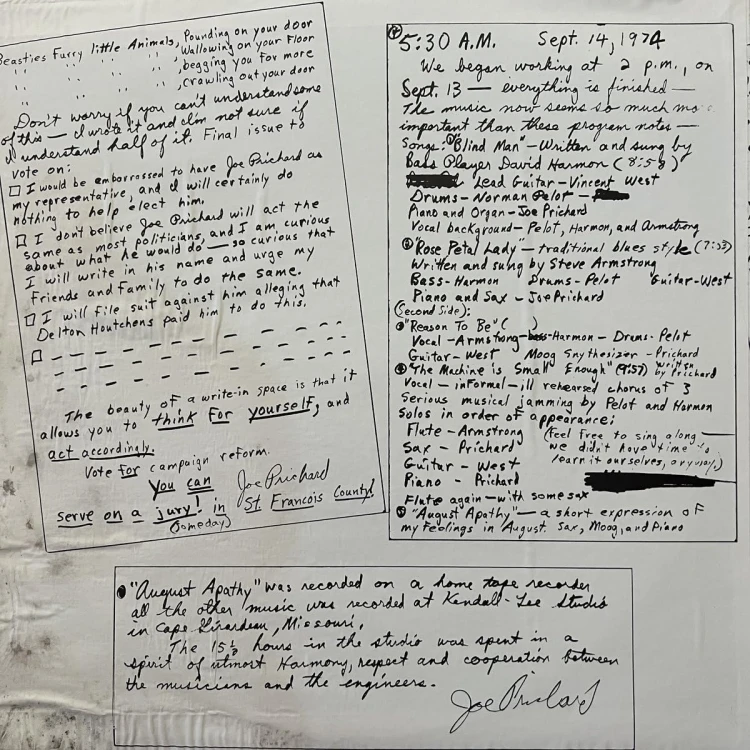 Beasties Furry little Animals, Pounding on your door
" " " " , Wallowing on your Floor
" " " " , begging you for more
" " " " , crawling out your door
Don't worry if you can't understand some
of this — I wrote it and I'm not sure if
I understand half of it. Final issue to
vote on:
☐ I would be embarrassed to have Joe Prichard as
my representative, and I will certainly do
nothing to help elect him.
☐ I don't believe Joe Prichard will act the
same as most politicians, and I am curious
about what he would do — so curious that
I will write in his name and urge my
Friends and Family to do the same.
☐ I will file suit against him alleging that
Delton Houtchens paid him to do this.
☐
The beauty of a write-in space is that it
allows you to think for yourself, and
act accordingly.
Vote for campaign reform.
You can Joe Prichard
serve on a jury! in St. Francois County!
(Someday)
5:30 A.M. Sept. 14, 1974
We began working at 2 p.m., on
Sept. 13 — everything is finished —
The music now seems so much more
important than these program notes —
Songs: ① "Blind Man" — Written and sung by
Bass Player David Harmon (8:58)
Lead Guitar — Vincent West
Drums — Norman Pelot —
Piano and Organ — Joe Prichard
Vocal background — Pelot, Harmon, and Armstrong
② "Rose Petal Lady" — traditional blues style (7:53)
Written and sung by Steve Armstrong
Bass - Harmon Drums - Pelot Guitar - West
Piano and Sax — Joe Prichard
(Second Side):
"Reason To Be" ( )
Vocal - Armstrong - Harmon - Drums - Pelot
Guitar - West Moog Snythesizer - Prichard
"The Machine is Small Enough" (9:57) written by Prichard
Vocal — informal - ill rehearsed chorus of 3
Serious musical jamming by Pelot and Harmon
Solos in order of appearance:
Flute - Armstrong (Feel free to sing along —
Sax - Prichard we didn't have time to
Guitar - West learn it ourselves, anyway.)
Piano - Prichard
Flute again — with some sax
"August Apathy" — a short expression of
my feelings in August. Sax, Moog, and Piano
"August Apathy" was recorded on a home tape recorder
all the other music was recorded at Kendall-Lee Studio
in Cape Girardeau, Missouri.
The 15½ hours in the studio was spent in a
spirit of utmost Harmony, respect and cooperation between
the musicians and the engineers.
Joe Prichard